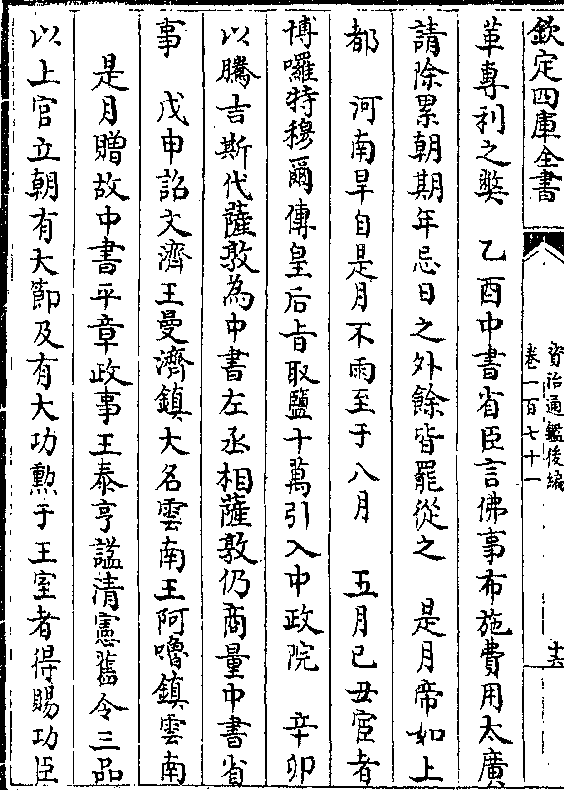 欽定四庫全書
資治通鑑後編
卷一百七十一
十六
革專利之弊　乙酉中書省臣言佛事布施費用太廣
請除累朝期年忌日之外餘皆罷從之　是月帝如上
都　河南旱自是月不雨至于八月　五月己丑宦者
博囉特穆爾傳皇后旨取鹽十萬引入中政院　辛卯
以騰吉斯代薩敦為中書左丞相薩敦仍商量中書省
事　戊申詔文濟王曼濟鎮大名雲南王阿嚕鎮雲南
是月贈故中書平章政事王泰亨諡清憲舊令三品
以上官立朝有大節及有大功勲于王室者得賜功臣